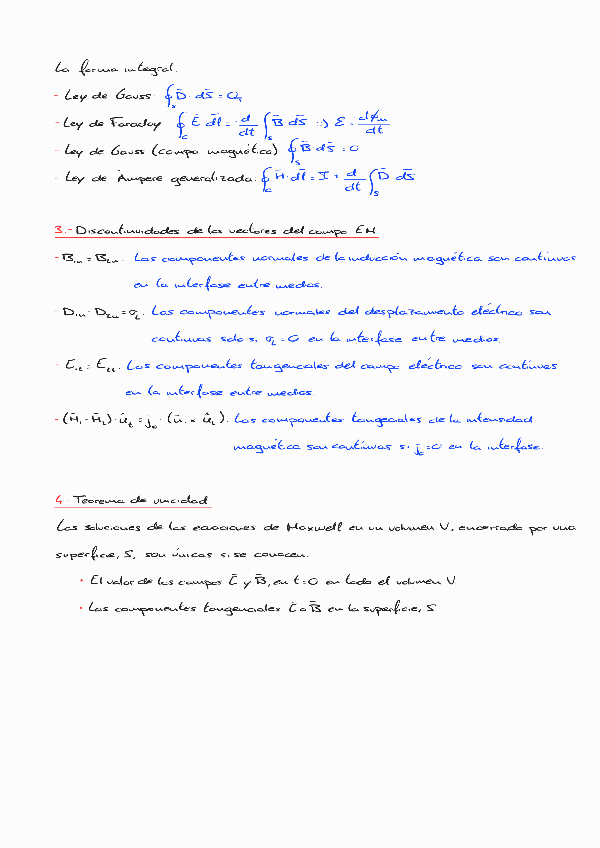 La forma integral:
- Ley de Gauss: ∮_s D̄·dS̄ = Q_T
- Ley de Faraday ∮_c Ē·dl̄ = -d/dt ∫_s B̄·dS̄ => ε = -dφ_m/dt
- Ley de Gauss (campo magnético) ∮_s B̄·dS̄ = 0
- Ley de Ampere generalizada: ∮_c H̄·dl̄ = I + d/dt ∫_s D̄·dS̄
3.- Discontinuidades de los vectores del campo EM
- B₁ₙ = B₂ₙ. Las componentes normales de la inducción magnética son continuas
en la interfase entre medios.
- D₁ₙ - D₂ₙ = σ_L. Las componentes normales del desplazamiento eléctrico son
continuas solo si σ_L = 0 en la interfase entre medios.
- E₁ₜ = E₂ₜ. Las componentes tangenciales del campo eléctrico son continuas
en la interfase entre medios.
- (H̄₁ - H̄₂)·û_t = j_c·(û₁ × û_t). Las componentes tangeciales de la intensidad
magnética son continuas si j_c = 0 en la interfase.
4.- Teorema de unicidad
Las soluciones de las ecuaciones de Maxwell en un volumen V, encerrado por una
superficie, S, son únicas si se conocen:
• El valor de los campos Ē y B̄, en t=0 en todo el volumen V
• Las componentes tangenciales Ē o B̄ en la superficie, S